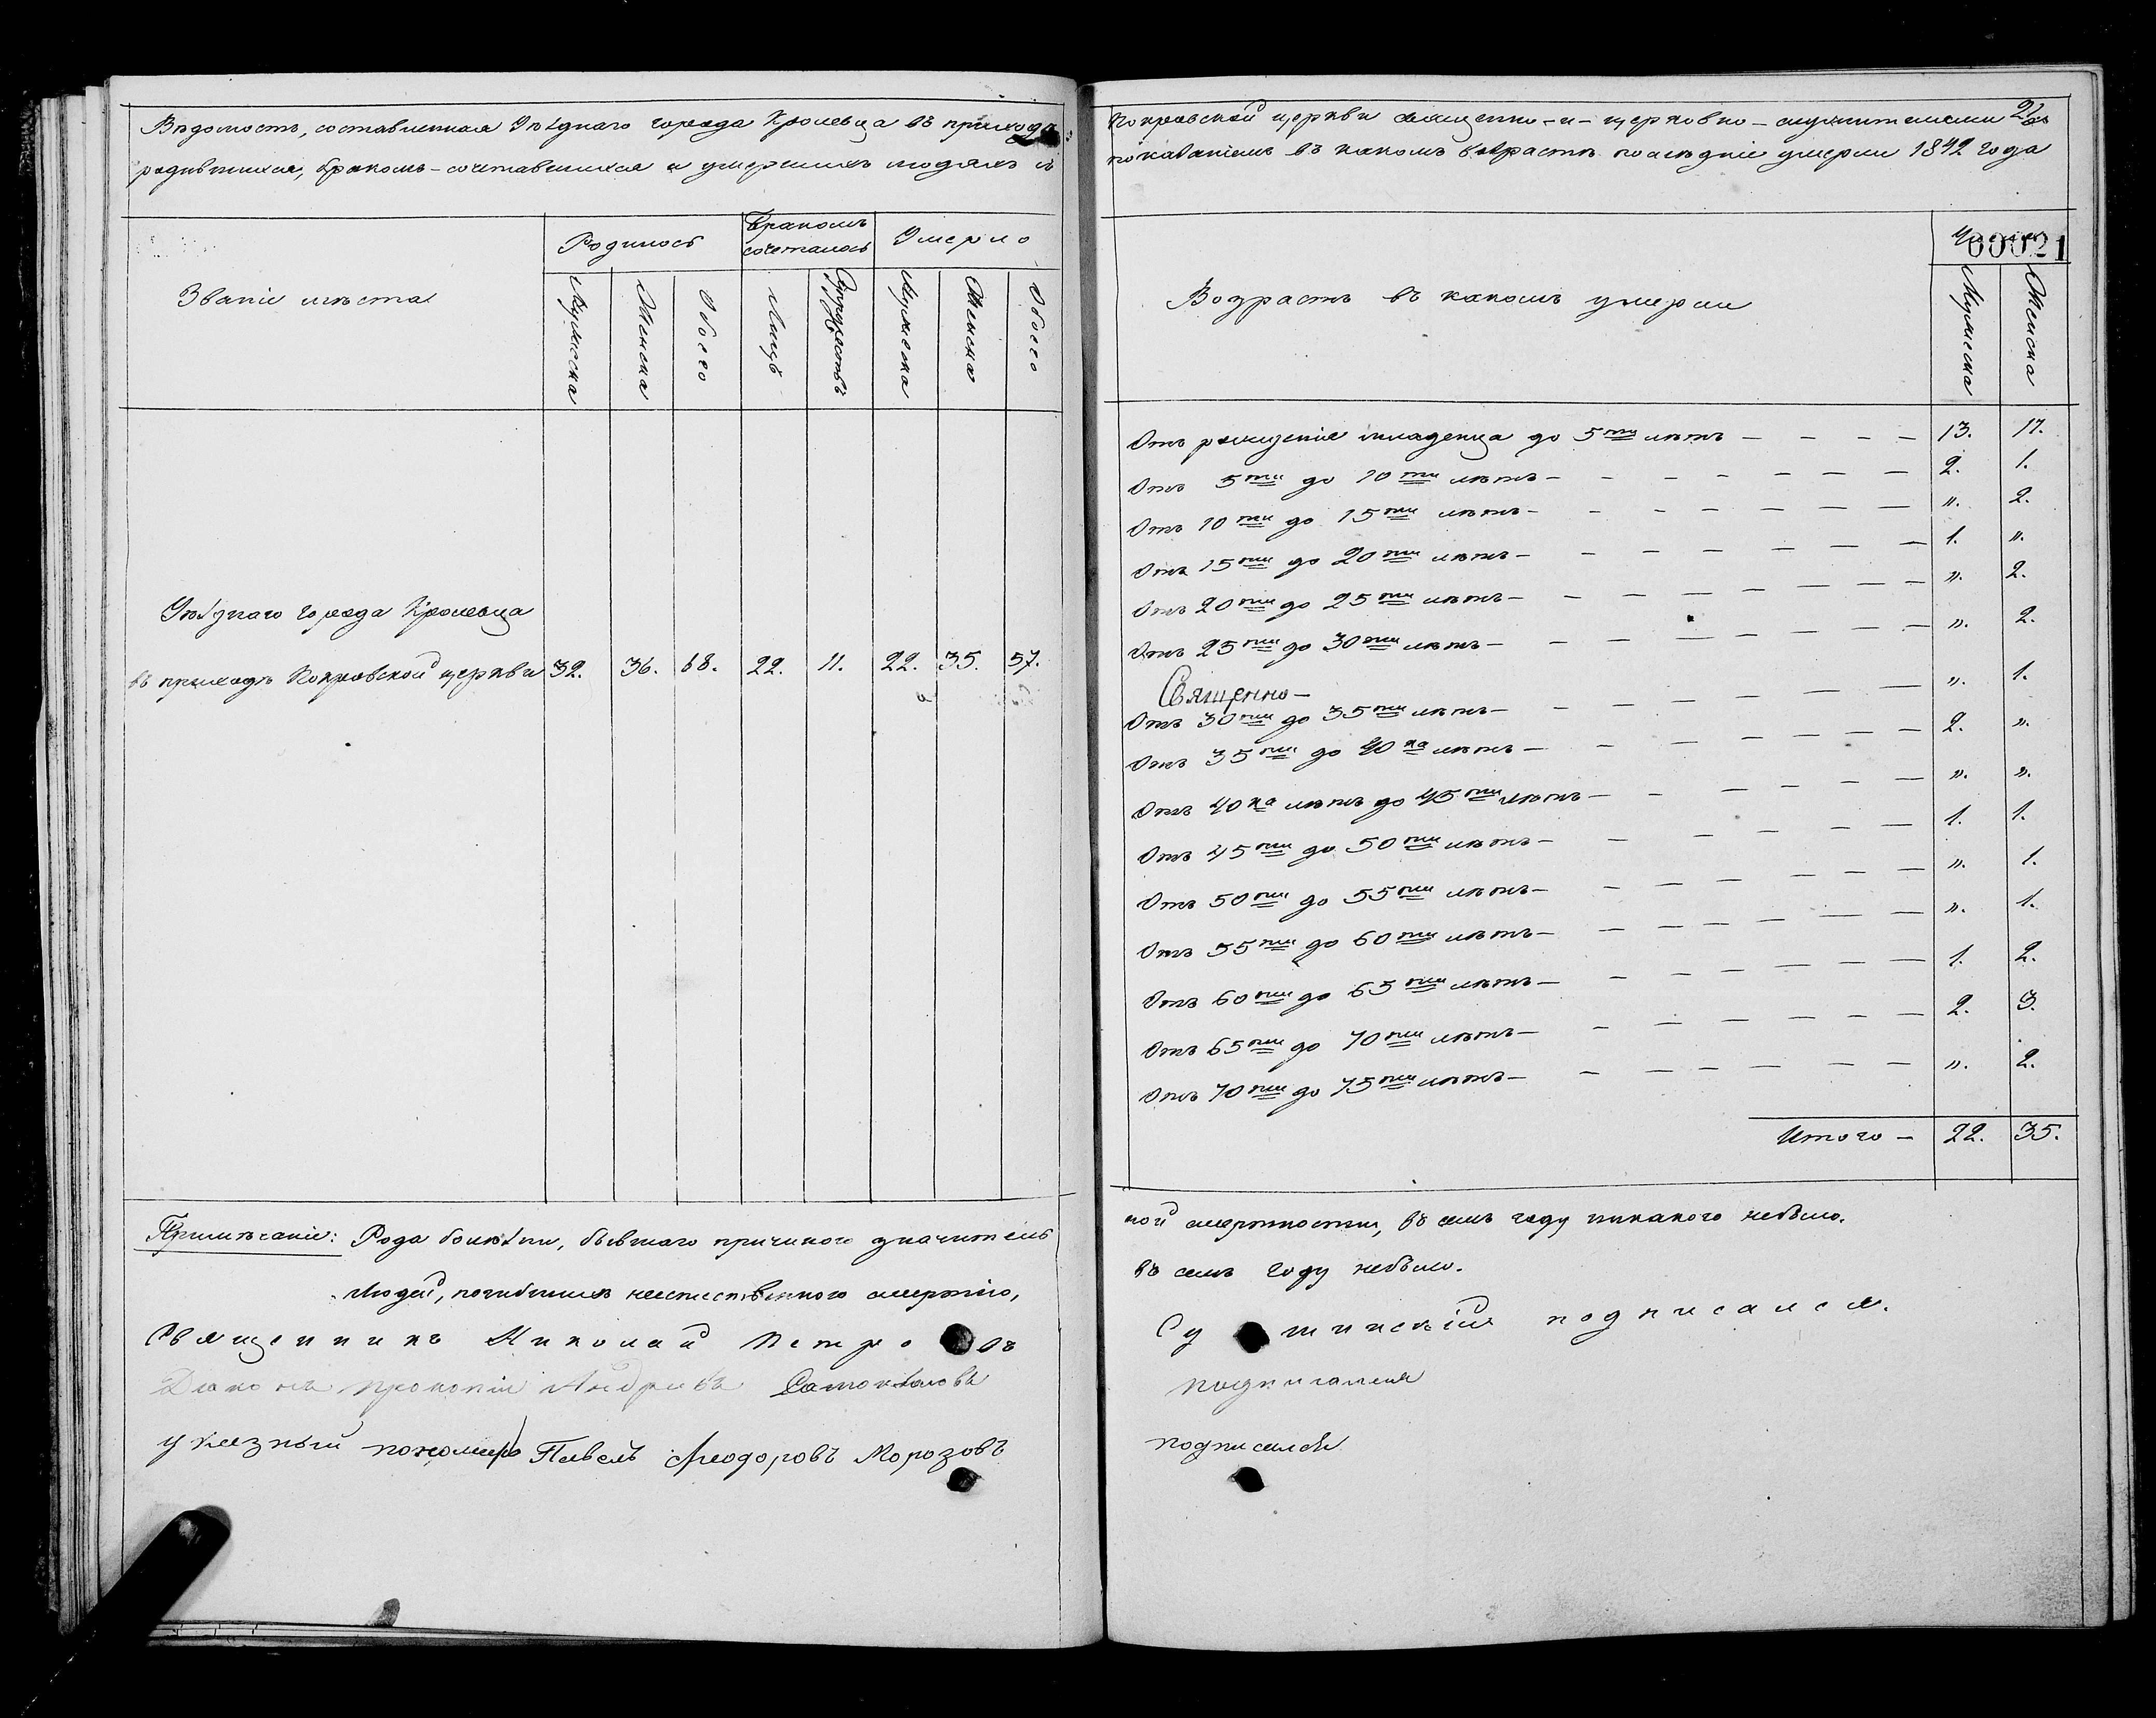 Вѣдомость, составленная Уѣзднаго города Кролевца въ приходѣ
родившихся, бракомъ-сочетавшихся и умершихъ людяхъ съ
Званіе мѣста
Родилось
Бракомъ сочеталось
Умерло
Мужеска
Женска
Обоего
Лицъ
Супружествъ
Мужеска
Женска
Обоего
Уѣзднаго города Кролевца
въ приходѣ Покровской церкви 32. 36. 68. 22. 11. 22. 35. 57.
Примѣчаніе: Рода болѣзни, бывшаго причиною значитель
Людей, погибшихъ неестественною смертію,
Священникъ Николай Петро овъ
Діаконъ Прокопій Андреевъ
указный пономарь Павелъ Ѳеодоровъ Морозовъ
Покровской церкви священно-и-церковно-служителями
показаніемъ въ какомъ возрастѣ послѣдніе умерли 1842 года
21
00021
Возрастъ въ какомъ умерли
Мужеска
Женска
Отъ рожденія младенца до 5ти лѣтъ — — — — 13. 17.
Отъ 5ти до 10ти лѣтъ — — — — — — 2. 1.
Отъ 10ти до 15ти лѣтъ — — — — — — „. 2.
Отъ 15ти до 20ти лѣтъ — — — — — — 1. „.
Отъ 20ти до 25ти лѣтъ — — — — — — „. 2.
Отъ 25ти до 30ти лѣтъ — — — — — — „. 2.
Священно-
Отъ 30ти до 35ти лѣтъ — — — — — — „. 1.
Отъ 35ти до 40ка лѣтъ — — — — — — 2. „.
Отъ 40ка лѣтъ до 45ти лѣтъ — — — — — „. „.
Отъ 45ти до 50ти лѣтъ — — — — — — 1. 1.
Отъ 50ти до 55ти лѣтъ — — — — — — „. 1.
Отъ 55ти до 60ти лѣтъ — — — — — — „. 1.
Отъ 60ти до 65ти лѣтъ — — — — — — 1. 2.
Отъ 65ти до 70ти лѣтъ — — — — — — 2. 3.
Отъ 70ти до 75ти лѣтъ — — — — — — „. 2.
Итого — 22. 35.
ной смертности, въ семъ году никакого небыло.
въ семъ году небыло.
подписался.
подписался
подписался